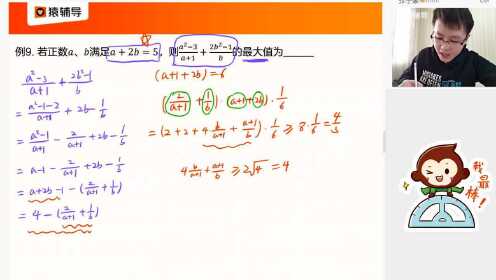 猿辅导
例9. 若正数a、b满足a + 2b = 5，则\frac{a²-3}{a+1} + \frac{2b²-1}{b}的最大值为______
\frac{a²-3}{a+1} + \frac{2b²-1}{b}
= \frac{a²-1-2}{a+1} + 2b - \frac{1}{b}
= \frac{a²-1}{a+1} - \frac{2}{a+1} + 2b - \frac{1}{b}
= a-1 - \frac{2}{a+1} + 2b - \frac{1}{b}
= a+2b-1 - (\frac{2}{a+1} + \frac{1}{b})
= 4 - (\frac{2}{a+1} + \frac{1}{b})
(a+1+2b) = 6
(\frac{2}{a+1} + \frac{1}{b}) · (a+1+2b) · \frac{1}{6}
= (2+2+4\frac{b}{a+1} + \frac{a+1}{b}) · \frac{1}{6} ≥ 8 · \frac{1}{6} = \frac{4}{3}
4\frac{b}{a+1} + \frac{a+1}{b} ≥ 2√4 = 4
我最棒!